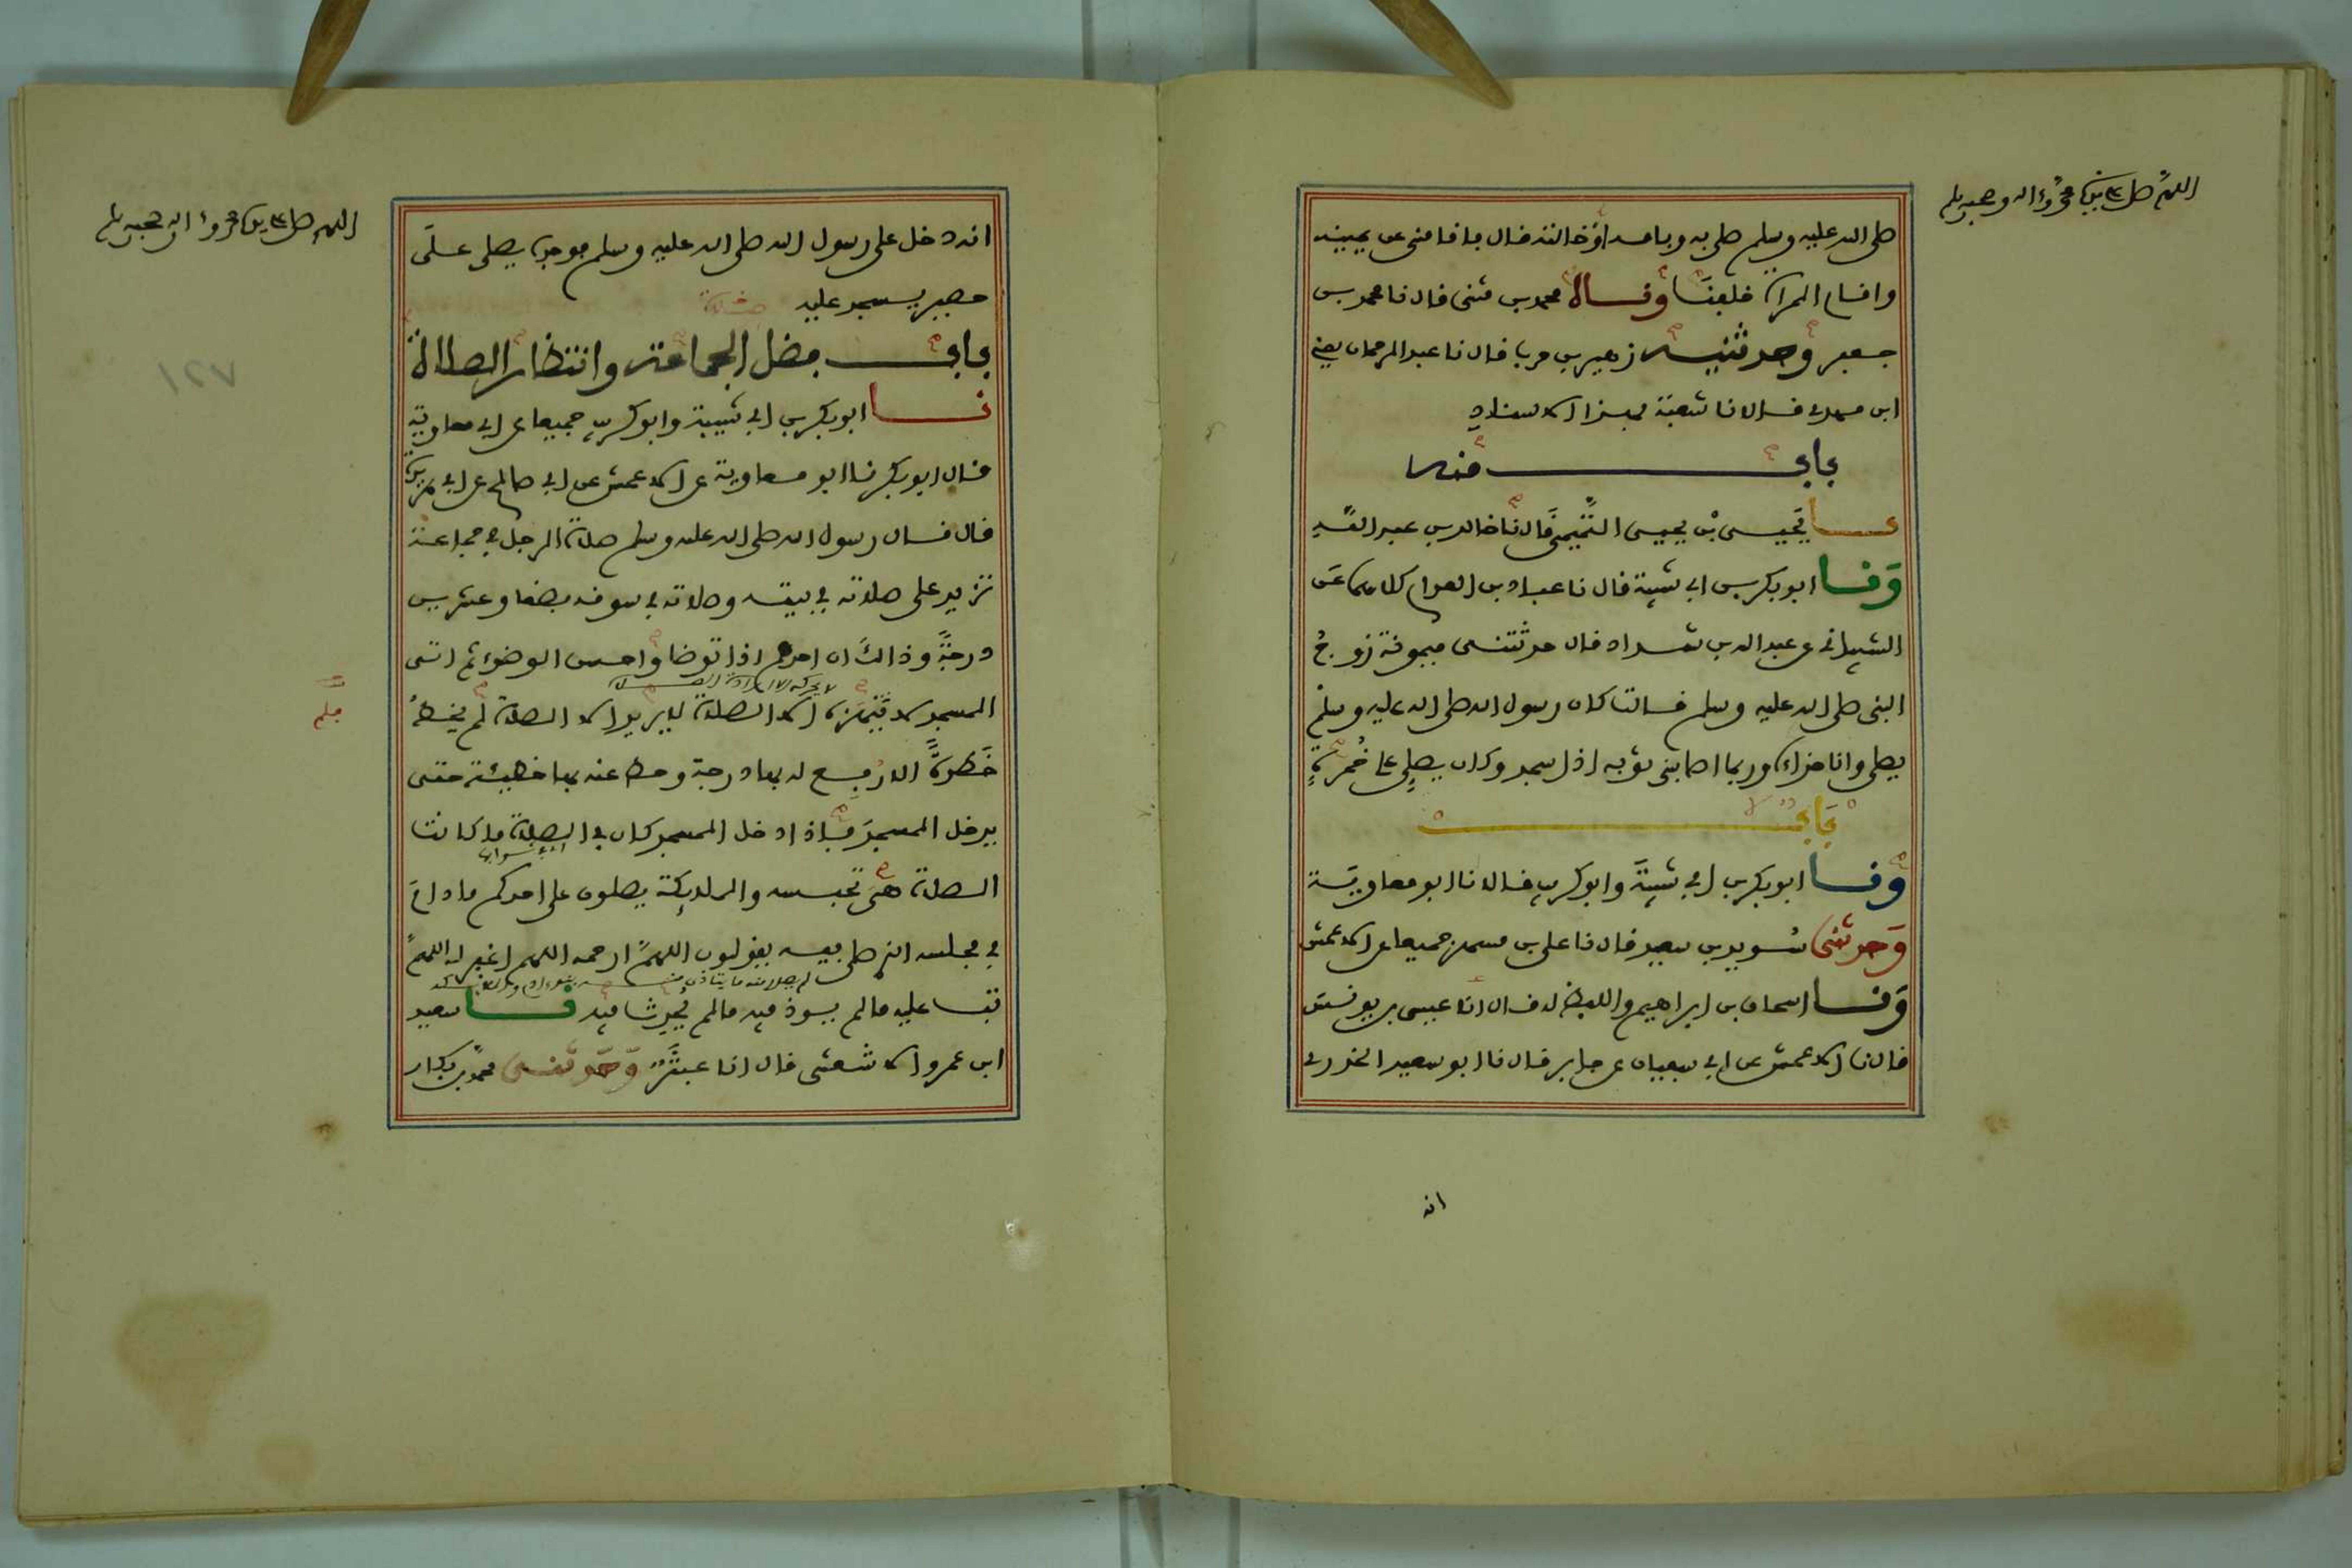 اللهم صل على سيدنا محمد وءاله وصحبه وسلم
صلى الله عليه وسلم صلى به وبامه او خالته قال فاقامني عن يمينه
واقام المرأة خلفنا ونا محمد بن مثنى قال نا محمد بن
جعفر وحدثنيه زهير بن حرب قال نا عبد الرحمان يعني
ابن مهدي قالا نا شعبة بهذا الاسناد
باب منه
نا يحيى بن يحيى التميمي قال نا خالد بن عبد الله
ونا ابو بكر بن ابي شيبة قال نا عباد بن العوام كلاهما عن
الشيباني عن عبد الله بن شداد قال حدثتني ميمونة زوج
النبي صلى الله عليه وسلم قالت كان رسول الله صلى الله عليه وسلم
يصلي وانا حذاءه وربما اصابني ثوبه اذا سجد وكان يصلي على خمرة
باب
ونا ابو بكر بن ابي شيبة وابو كريب قالا نا ابو معاوية
وحدثني سويد بن سعيد قال نا علي بن مسهر جميعا عن الاعمش
ونا اسحاق بن ابراهيم واللفظ له قال انا عيسى بن يونس
قال نا الاعمش عن ابي سفيان عن جابر قال نا ابو سعيد الخدري
انه
اللهم صل على سيدنا محمد وءاله وصحبه وسلم
انه دخل على رسول الله صلى الله عليه وسلم فوجده يصلي على
حصير يسجد عليه
باب فضل الجماعة وانتظار الصلاة
نا ابو بكر بن ابي شيبة وابو كريب جميعا عن ابي معاوية
قال ابو بكر نا ابو معاوية عن الاعمش عن ابي صالح عن ابي هريرة
قال قال رسول الله صلى الله عليه وسلم صلاة الرجل في جماعة
تزيد على صلاته في بيته وصلاته في سوقه بضعا وعشرين
درجة وذالك ان احدهم اذا توضا واحسن الوضوء ثم اتى
المسجد لا ينهزه الا الصلاة لا يريد الا الصلاة لم يخط
خطوة الا رفع له بها درجة وحط عنه بها خطيئة حتى
يدخل المسجد فاذا دخل المسجد كان في الصلاة ما كانت
الصلاة هي تحبسه والملايكة يصلون على احدكم ما دام
في مجلسه الذي صلى فيه يقولون اللهم ارحمه اللهم اغفر له اللهم
تب عليه ما لم يوذ فيه ما لم يحدث فيه نا سعيد
ابن عمرو الاشعثي قال انا عبثر وحدثني محمد بن بكار
١٢٧